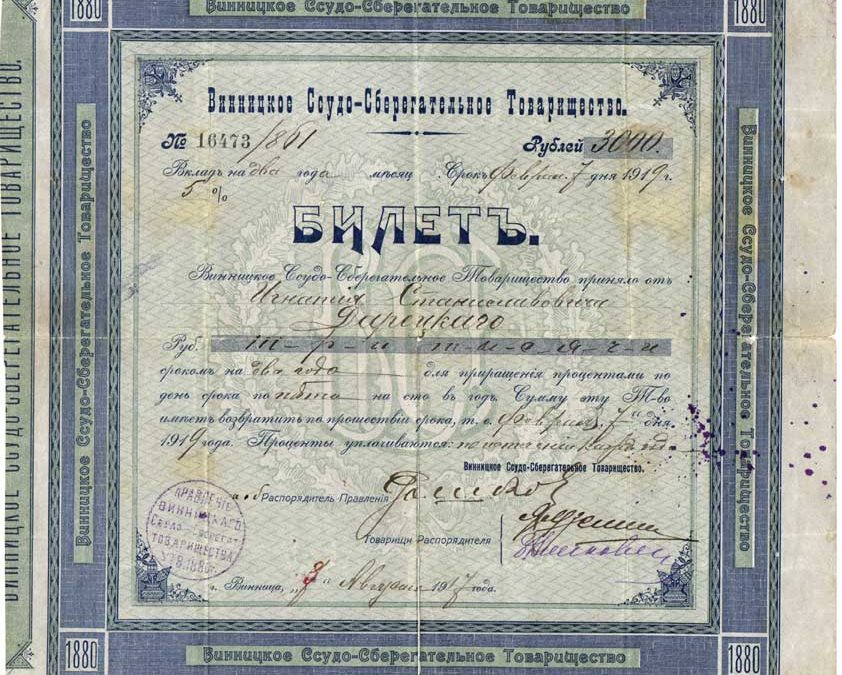 1880
Винницкое Ссудо-Сберегательное Товарищество
1880
ВИННИЦКОЕ ССУДО-СБЕРЕГАТЕЛЬНОЕ ТОВАРИЩЕСТВО.
Винницкое Ссудо-Сберегательное Товарищество
Винницкое Ссудо-Сберегательное Товарищество
Винницкое Ссудо-Сберегательное Товарищество.
№ 16473/861 Рублей 3000.
Вкладъ на два года мѣсяц. Срокъ Феврал. 7 дня 1919 г.
5 %
БИЛЕТЪ.
Винницкое Ссудо-Сберегательное Товарищество приняло отъ
Игнатія Станиславовича
Дарецкаго
Руб. т-р-и т-ы-с-я-ч-и
срокомъ на два года для приращенія процентами по
день срока по пять на сто въ годъ. Сумму эту Т-во
имѣетъ возвратить по прошествіи срока, т. е. Февраля 7 дня
1919 года. Проценты уплачиваются: по истеченіи
Винницкое Ссудо-Сберегательное Товарищество.
Распорядитель Правленія
Товарищи Распорядителя
ПРАВЛЕНІЕ
ВИННИЦКАГО
ССУДО-СБЕРЕГАТ.
ТОВАРИЩЕСТВА
г. Винница, "7" Августа 1917 года.
1880
Винницкое Ссудо-Сберегательное Товарищество
1880